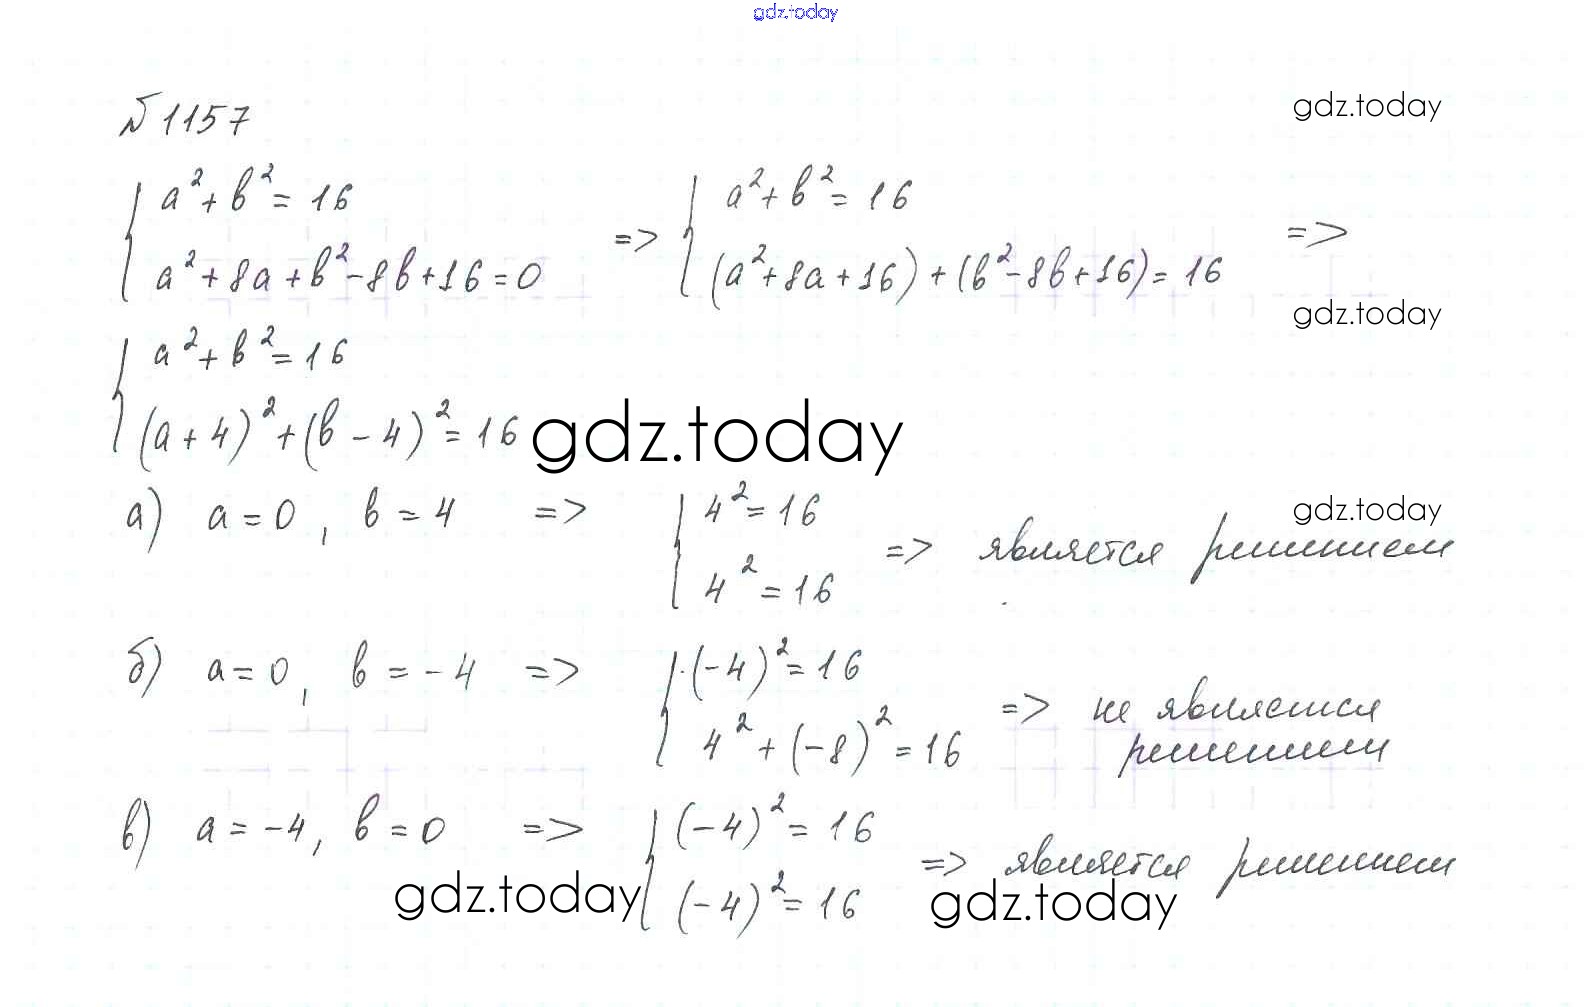 gdz.today
№1157
gdz.today
{ a² + b² = 16
a² + 8a + b² - 8b + 16 = 0 => { a² + b² = 16
(a² + 8a + 16) + (b² - 8b + 16) = 16 =>
gdz.today
{ a² + b² = 16
(a + 4)² + (b - 4)² = 16
gdz.today
а) a = 0, b = 4 => { 4² = 16
4² = 16 => является решением
gdz.today
б) a = 0, b = -4 => { (-4)² = 16
4² + (-8)² = 16 => не является
решением
в) a = -4, b = 0 => { (-4)² = 16
(-4)² = 16 => является решением
gdz.today
gdz.today